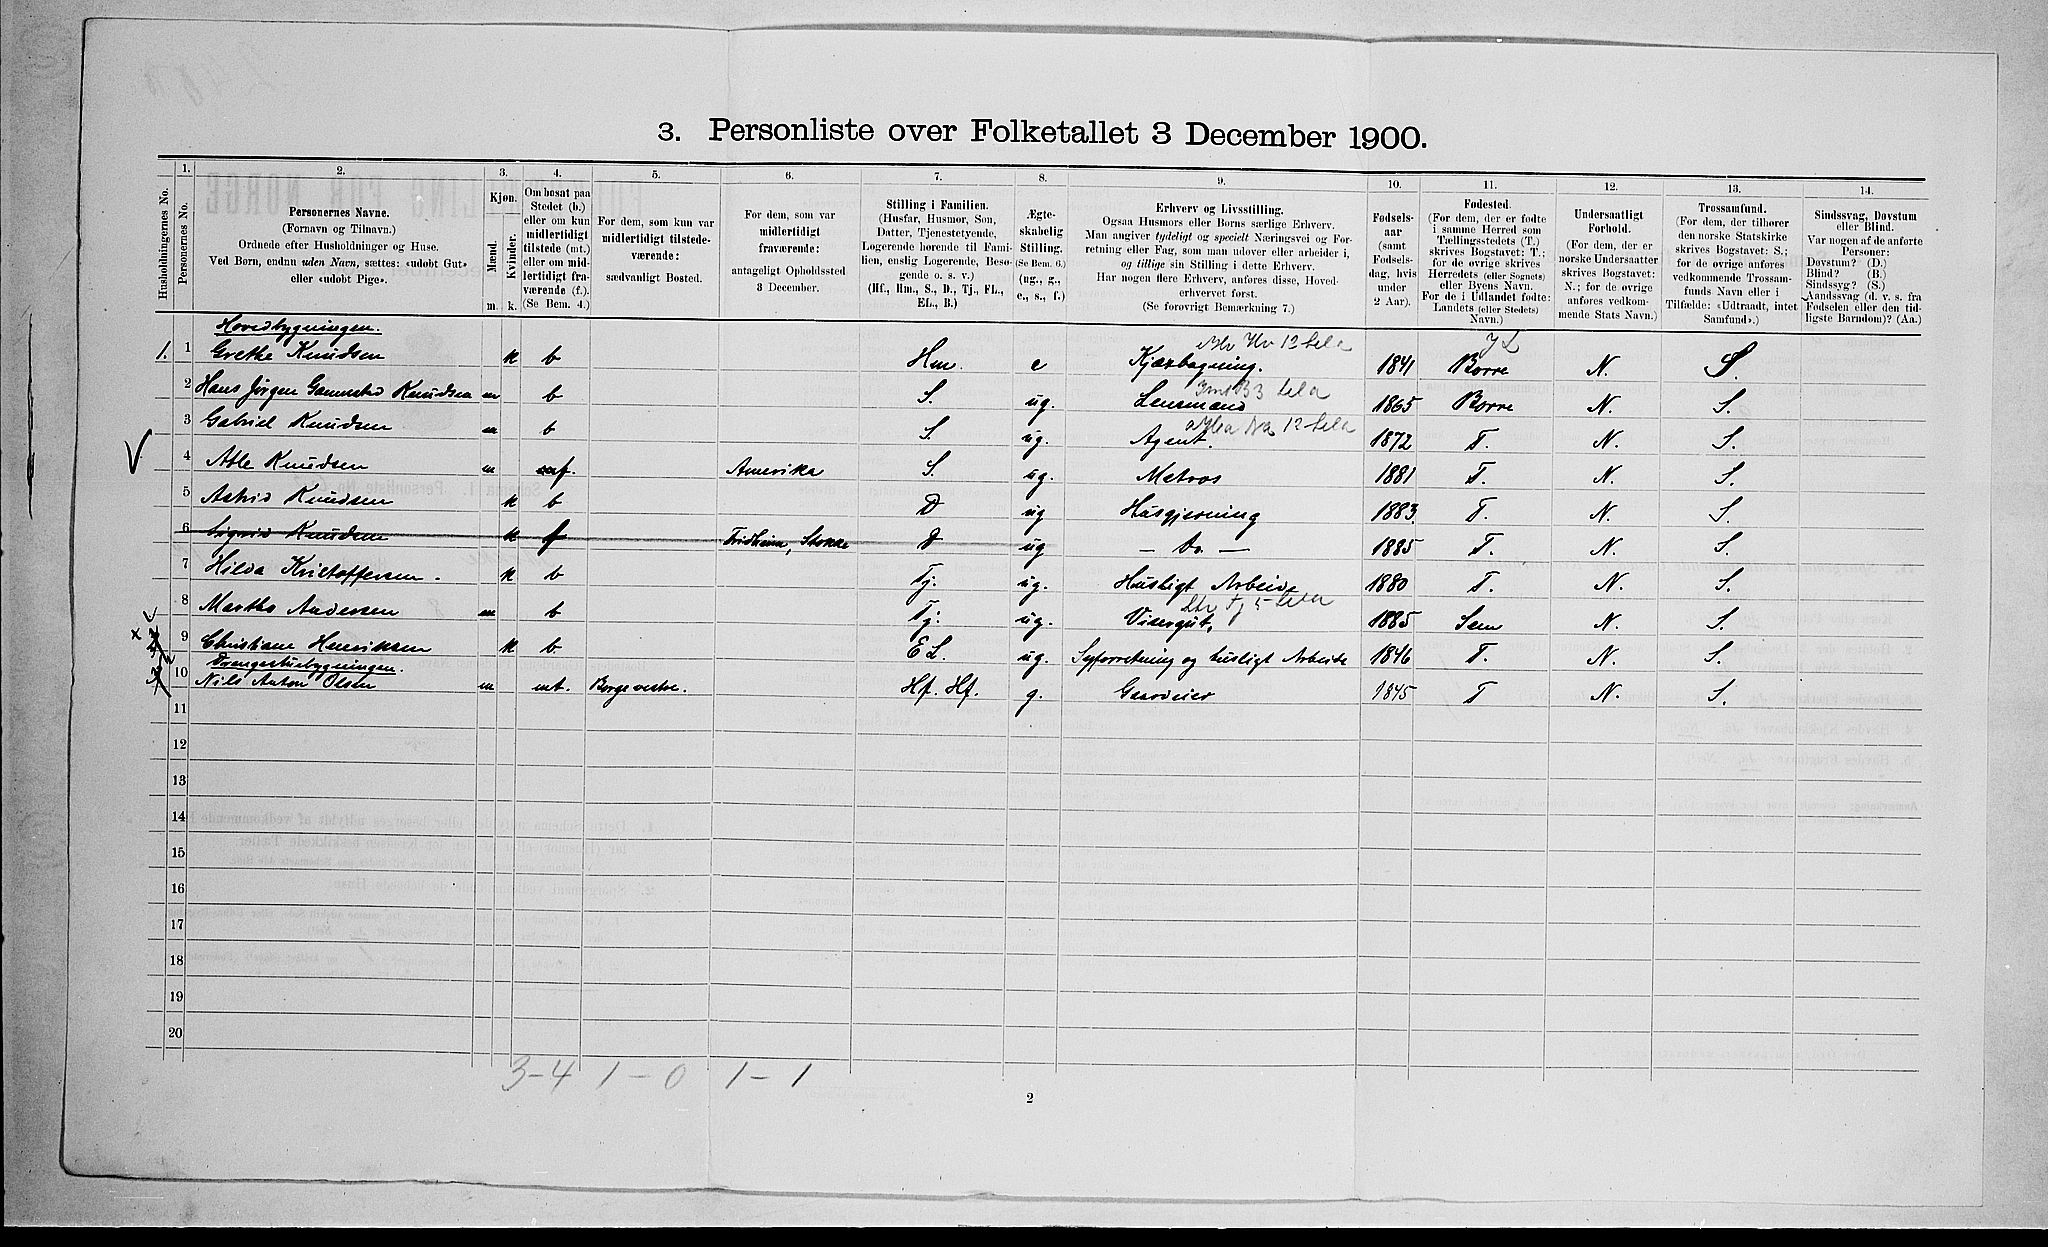 3. Personliste over Folketallet 3 December 1900.
Husholdningernes No.
1.
Personernes No.
2.
Personernes Navne.
(Fornavn og Tilnavn.)
Ordnede efter Husholdninger og Huse.
Ved Børn, endnu uden Navn, sættes: «udøbt Gut»
eller «udøbt Pige».
3.
Kjøn.
Mænd.
Kvinder.
m. k.
4.
Om bosat paa
Stedet (b.)
eller om kun
midlertidigt
tilstede (mt.)
eller om mid-
lertidigt fra-
værende (f.).
(Se Bem. 4.)
5.
For dem, som kun var
midlertidigt tilstede-
værende:
sædvanligt Bosted.
6.
For dem, som var
midlertidigt
fraværende:
antageligt Opholdssted
3 December.
7.
Stilling i Familien.
(Husfar, Husmor, Søn,
Datter, Tjenestetyende,
Logerende hørende til Fami-
lien, enslig Logerende, Besø-
gende o. s. v.)
(Hf., Hm., S., D., Tj., FL.,
EL., B.)
8.
Ægte-
skabelig
Stilling.
(Se Bem. 6.)
(ug., g.,
e., s., f.)
9.
Erhverv og Livsstilling.
Ogsaa Husmors eller Børns særlige Erhverv.
Man angiver tydeligt og specielt Næringsvei og For-
retning eller Fag, som man udøver eller arbeider i,
og tillige sin Stilling i dette Erhverv.
Har nogen flere Erhverv, anføres disse, Hoved-
erhvervet først.
(Se forøvrigt Bemærkning 7.)
10.
Fødsels-
aar
(samt
Fødsels-
dag, hvis
under
2 Aar).
11.
Fødested.
(For dem, der er fødte
i samme Herred som
Tællingsstedets (T.)
skrives Bogstavet: T.;
for de øvrige skrives
Herredets (eller Sognets)
eller Byens Navn.
For de i Udlandet fødte:
Landets (eller Stedets)
Navn.)
12.
Undersaatligt
Forhold.
(For dem, der er
norske Undersaatter
skrives Bogstavet:
N.; for de øvrige
anføres vedkom-
mende Stats Navn.)
13.
Trossamfund.
(For dem, der tilhører
den norske Statskirke
skrives Bogstavet: S.;
for de øvrige anføres
vedkommende Trossam-
funds Navn eller i
Tilfælde: «Udtraadt, intet
Samfund».)
14.
Sindssvag, Døvstum
eller Blind.
Var nogen af de anførte
Personer:
Døvstum? (D.)
Blind? (B.)
Sindssyg? (S.)
Aandssvag (d. v. s. fra
Fødselen eller den tid-
ligste Barndom)? (Aa.)
Hovedbygningen.
1. 1 Grethe Knudsen k b Hm. e Kjøxbagning. 1841 Borre N. S.
2 Hans Jørgen Knudsen m b S. ug. Lensmand 1865 Borre N. S.
3 Gabriel Knudsen m b S. ug. Agent. 1872 T. N. S.
4 Atle Knudsen m f. Amerika S. ug. Matros 1881 T. N. S.
5 Astrid Knudsen k b D ug Husgjerning 1883. T. N. S.
6 Sigrid Knudsen k f Fridheim, Stokke D ug — do. — 1885 T. N. S.
7 Hilda Kristoffersen. k b Tj. ug. Husligt Arbeide 1880 T. N. S.
8 Andersen m b Tj. ug. Visergut. 1885 Sem N. S.
9 Christiane Henriksen k b E L. ug. Syforretning og husligt Arbeide 1846 T. N. S.
Drengestuebygningen.
10 Nils Anton Olsen m mt. Borge vestre. Hf. Hf. g. Gaardeier 1845 T N. S.
11
12
13
14
15
16
17
18
19
20
3-4 1-0 1-1
2